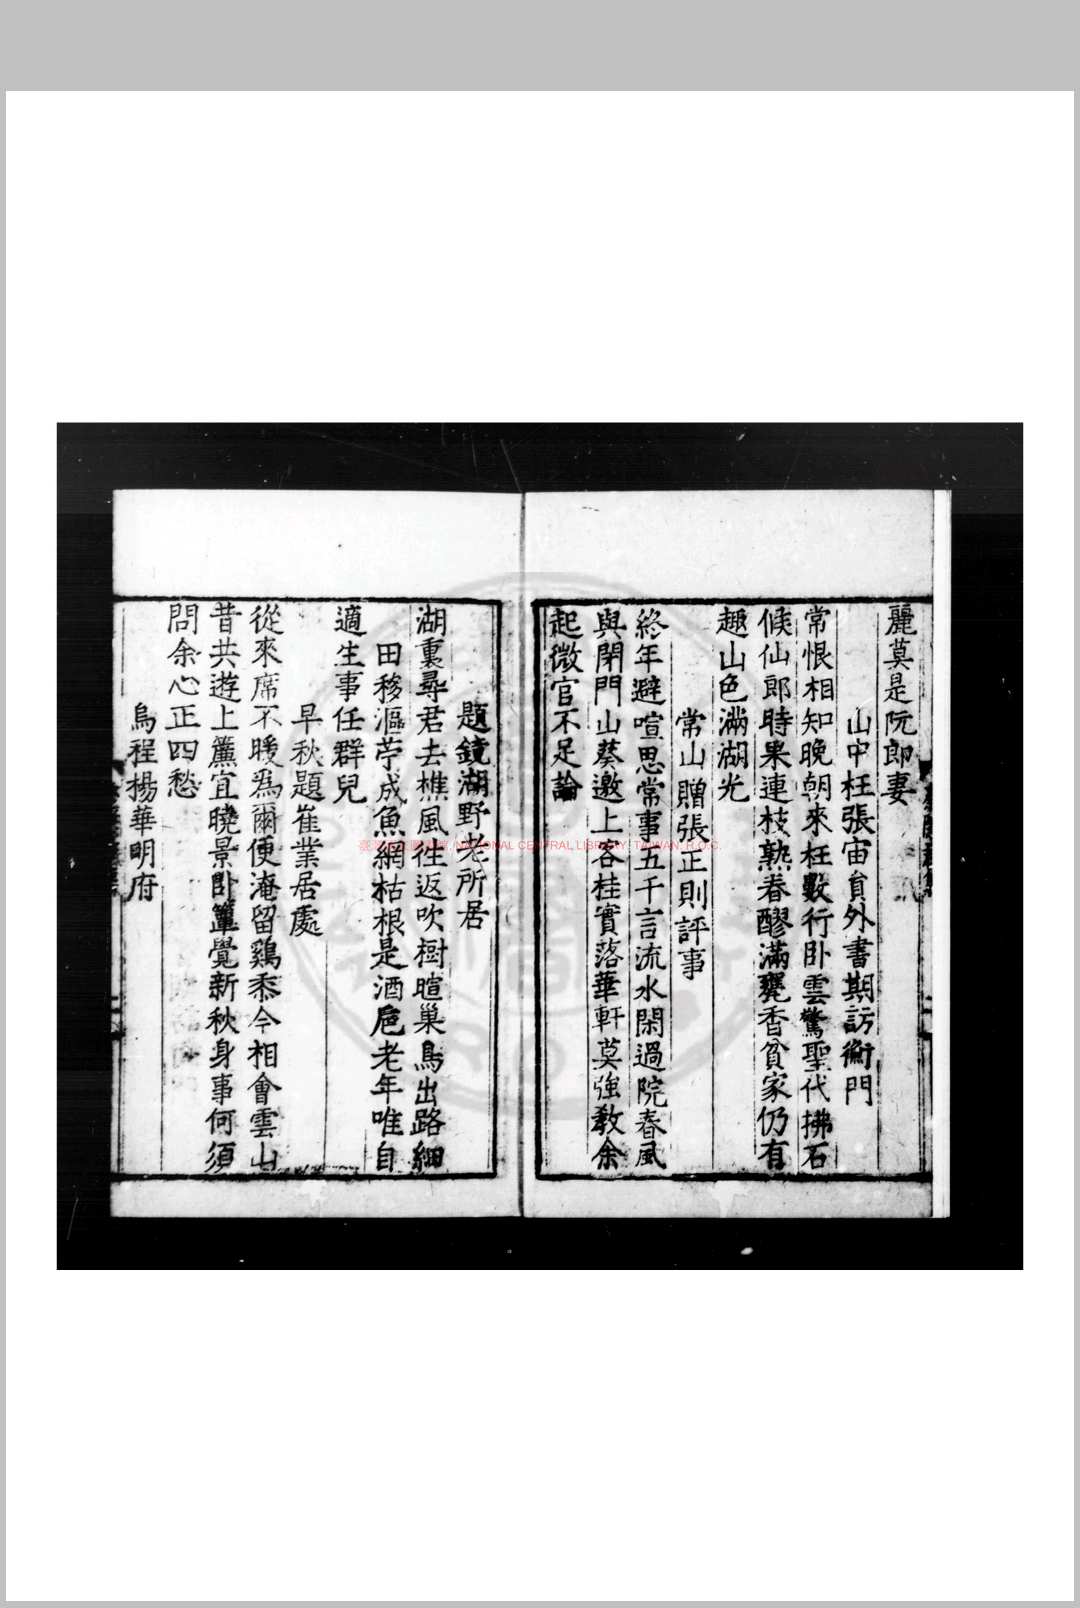 麗莫是阮郎妻
山中枉張宙負外書期訪衡門
常恨相知晚朝來枉數行卧雲驚聖代拂石
候仙郎時果連枝熟春醪滿甕香貧家仍有
趣山色滿湖光
常山贈張正則評事
終年避喧思常事五千言流水閑過院春風
與閉門山葵邀上客桂實落華軒莫強教余
起微官不足論
題鏡湖野老所居
湖裏尋君去樵風往返吹樹暄巢鳥出路細
田移漚苧成魚網枯根是酒巵老年唯自
適生事任群兒
早秋題崔業居處
從來席不暖爲爾便淹留鷄黍今相會雲山
昔共遊上簾宜曉景卧簟覺新秋身事何須
問余心正四愁
烏程楊華明府
NATIONAL CENTRAL LIBRARY, TAIWAN, R.O.C.